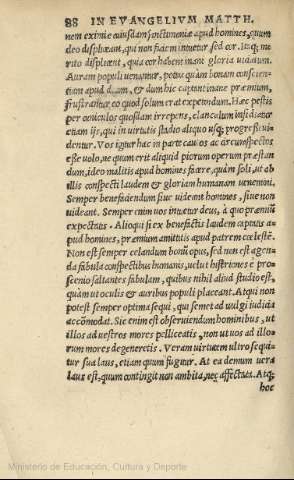 88 IN EVANGELIVM MATTH.
nem eximiæ cuiusdam sanctimoniæ apud homines, quum
deo displiceant, qui non faciem intuetur sed cor. Itaq; me
rito displicent, quia cor habent inani gloria uiciatum.
Auram populi uenantur, potius quàm bonam conscien-
tiam apud deum, & dum hic captant inane præmium,
frustrantur eo quod solum erat expetendum. Hæc pestis
per cuniculos quosdam irrepens, clanculum insidiatur
etiam ijs, qui in uirtutis stadio aliquo usq; progressi ui-
dentur. Vos igitur hac in parte cautos ac circunspectos
esse uolo, ne quum erit aliquid piorum operum præstan
dum, ideo malitis apud homines facere, quàm soli, ut ab
illis conspecti laudem & gloriam humanam uenemini.
Semper benefaciendum siue uideant homines, siue non
uideant. Semper enim uos intuetur deus, à quo præmiū
expectatis. Alioqui si ex benefactis laudem captatis a-
pud homines, præmium amittitis apud patrem cœlestē.
Non est semper celandum bonū opus, sed non est agen-
da fabula conspectibus humanis, uelut histriones è pro-
scenio saltantes fabulam, quibus nihil aliud studio est,
quàm ut oculis & auribus populi placeant. Atqui non
potest semper optima sequi, qui semet ad uulgi iudicia
accōmodat. Sic enim est obseruiendum hominibus, ut
illos ad uestros mores pelliceatis, non ut uos ad illo-
rum mores degeneretis. Veram uirtutem ultro sequi-
tur sua laus, etiam quum fugitur. At ea demum uera
laus est, quum contingit non ambita, neq; affectata. Atq;
hoc
Ministerio de Educación, Cultura y Deporte